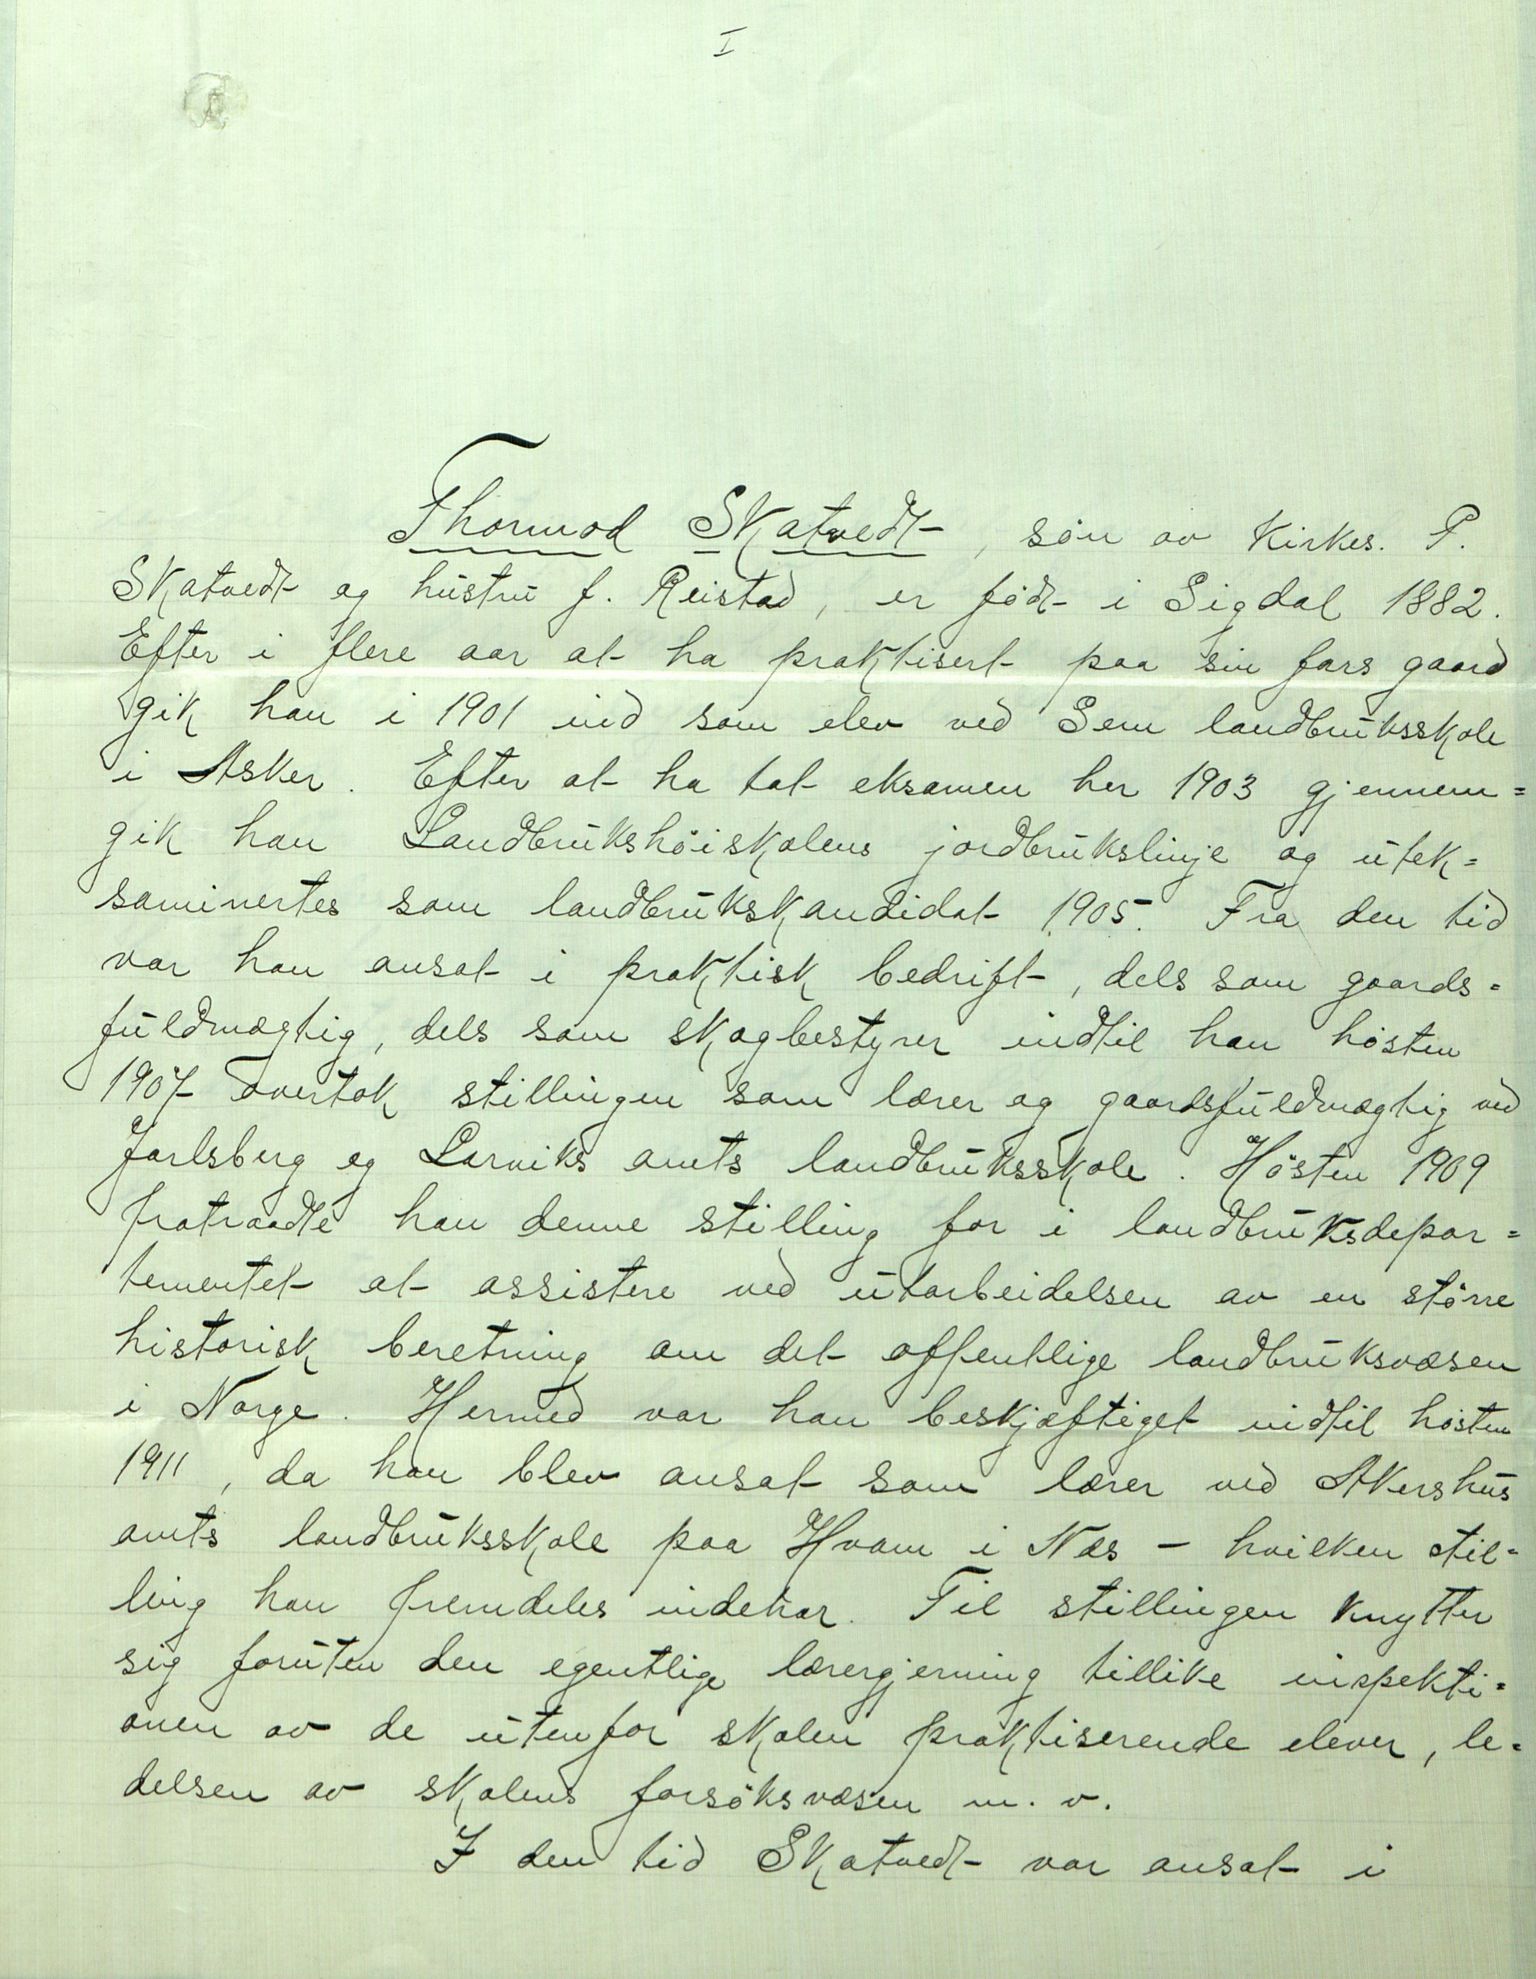 I
Thormod Skatvedt, sön av Kirkes. P.
Skatvedt og hustru f. Reistad, er födt i Sigdal 1882.
Efter i flere aar at ha praktisert paa sin fars gaard
gik han i 1901 ind som elev ved Sem landbruksskole
i Asker. Efter at ha tat eksamen her 1903 gjennem=
gik han Landbrukshöiskolens jordbrukslinje og utek=
saminertes som landbrukskandidat 1905. Fra den tid
var han ansat i praktisk bedrift, dels som gaards=
fuldmægtig, dels som skogbestyrer indtil han hösten
1907 overtok stillingen som lærer og gaardsfuldmægtig ved
Jarlsberg og Larviks amts landbruksskole. Hösten 1909
fratraadte han denne stilling for i landbruksdepar=
tementet at assistere ved utarbeidelsen av en större
historisk beretning om det offentlige landbruksvæsen
i Norge. Hermed var han beskjæftiget indtil hösten
1911, da han blev ansat som lærer ved Akershus
amts landbruksskole paa Hvam i Nes – hvilken stil=
ling han fremdeles indehar. Til stillingen knytter
sig foruten den egentlige lærergjerning tillike inspekti=
onen av de utenfor skolen praktiserende elever, le=
delsen av skolens forsöksvæsen m. v.
I den tid Skatvedt var ansat i